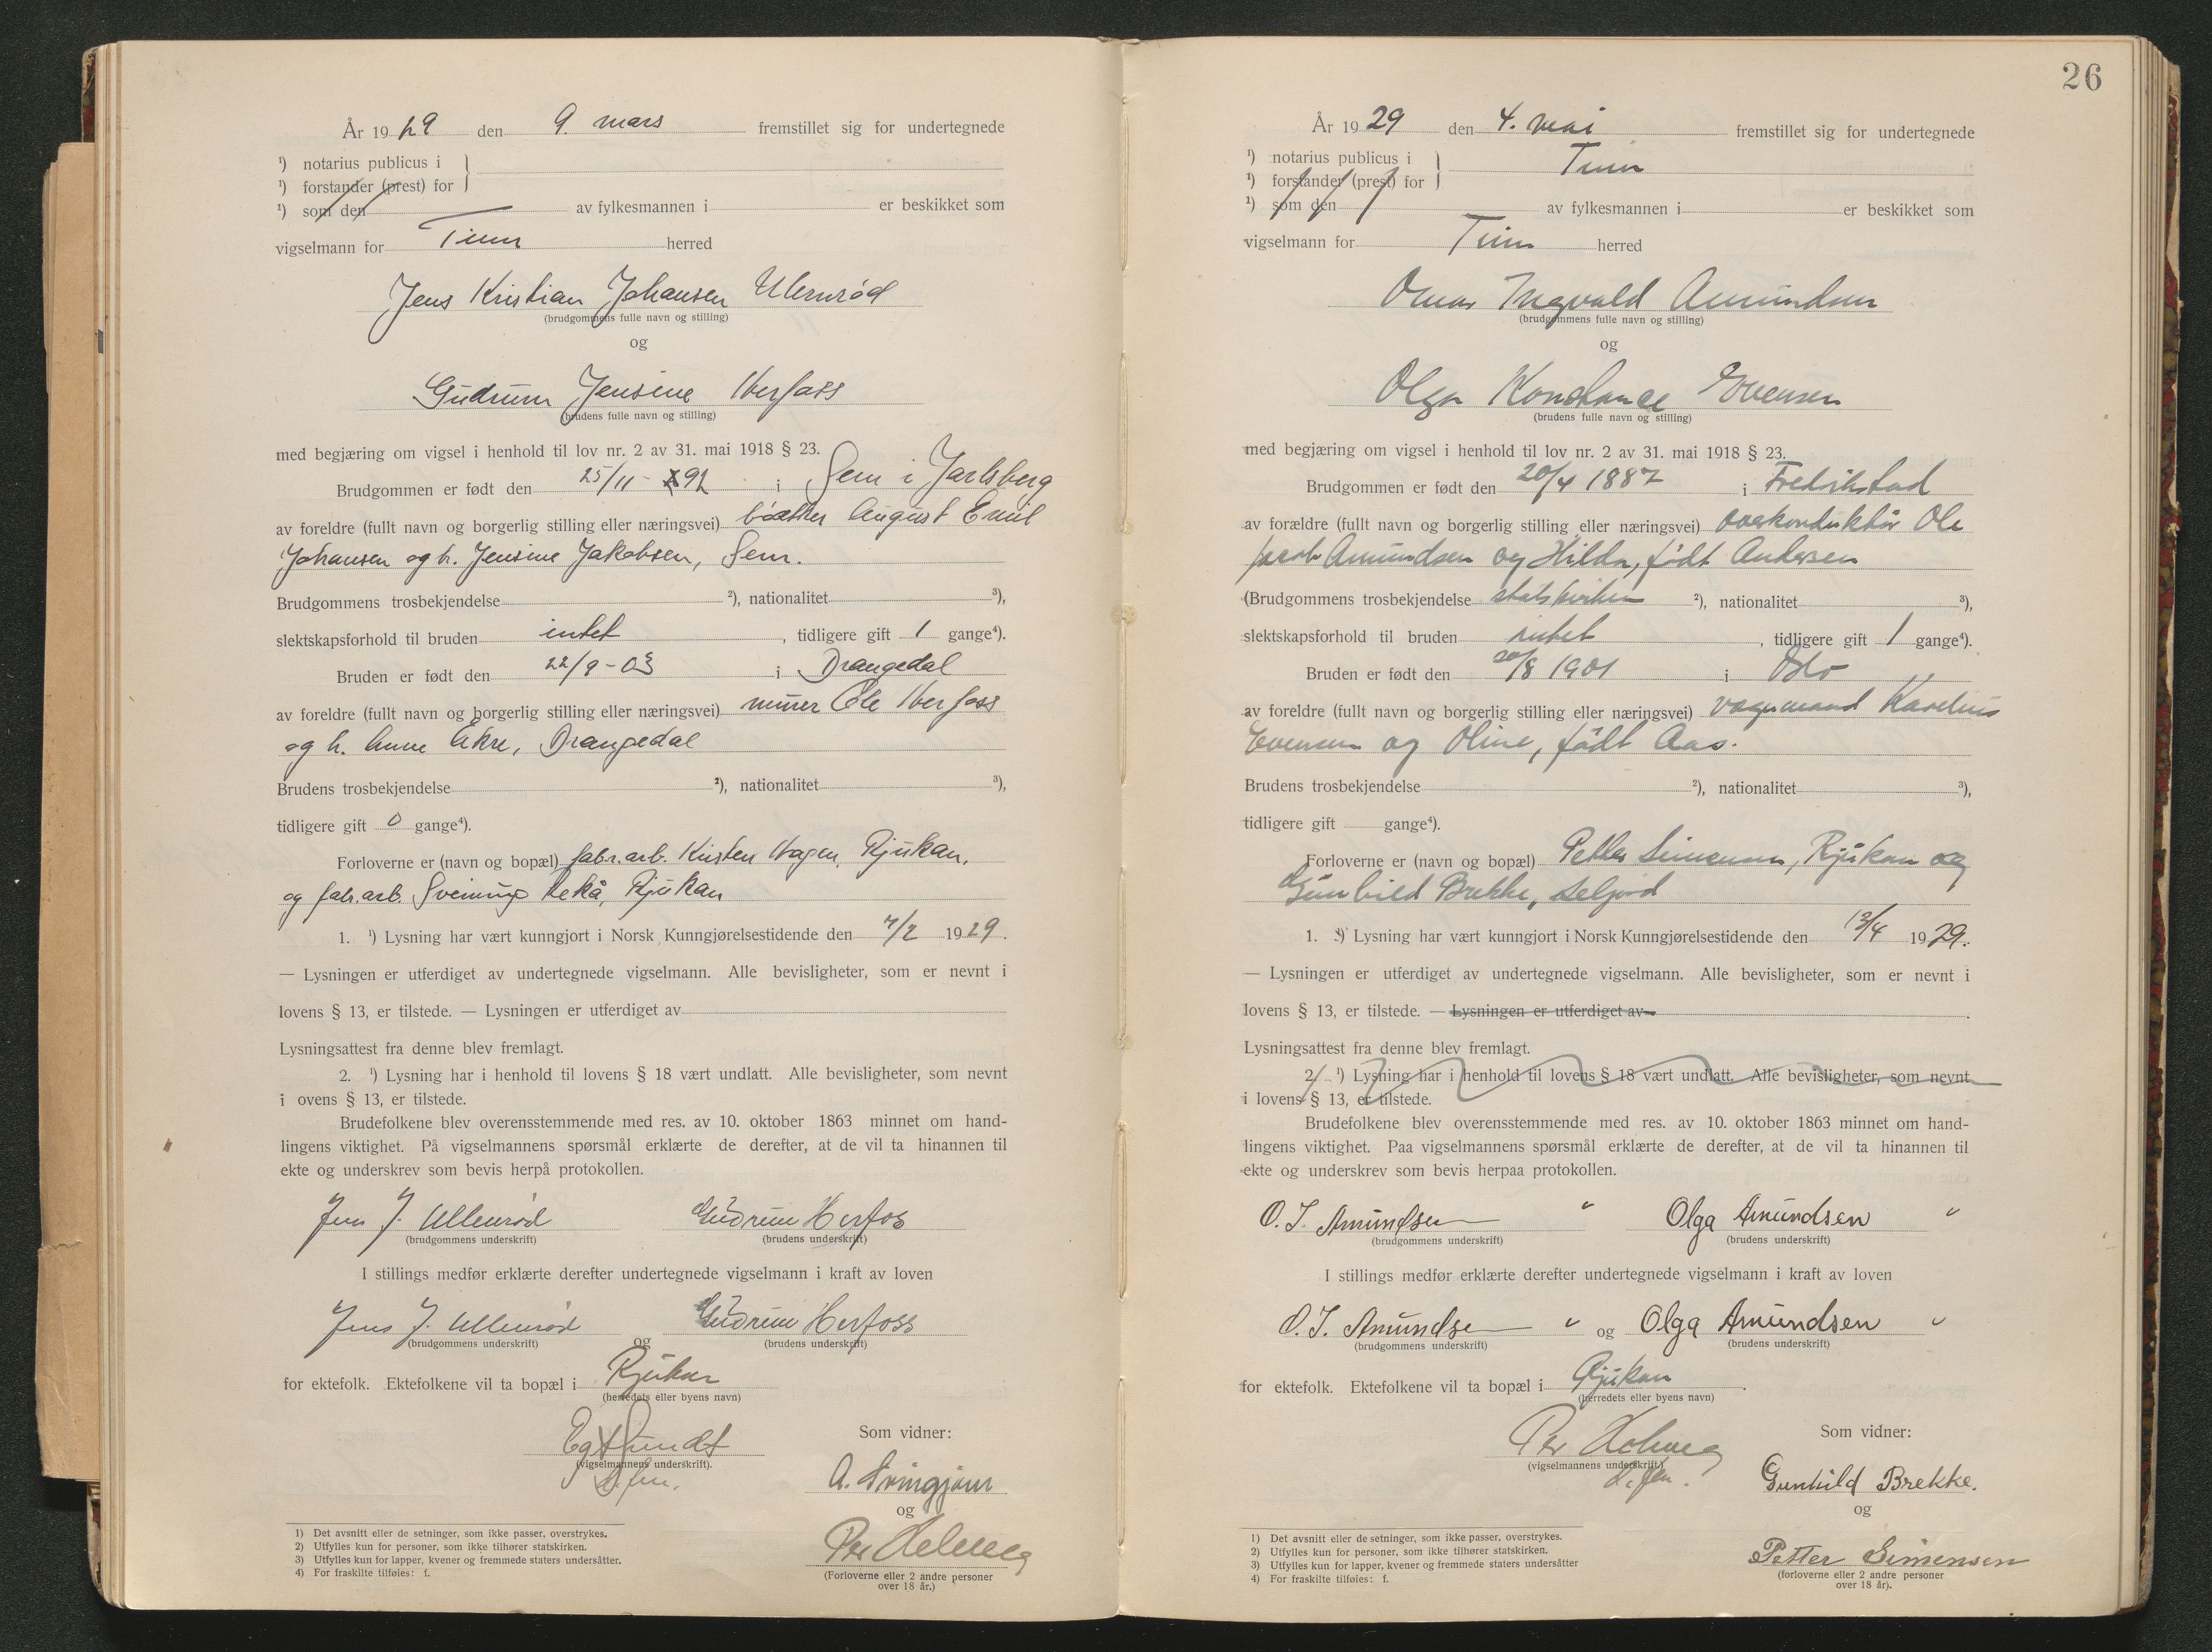 År 19 29 den 9. mars fremstillet sig for undertegnede
¹) notarius publicus i }
¹) forstander (prest) for
¹) som den av fylkesmannen i er beskikket som
vigselmann for Tinn herred
Jens Kristian Johansen Ullenrød
(brudgommens fulle navn og stilling)
og
Gudrun Jensine Herfoss
(brudens fulle navn og stilling)
med begjæring om vigsel i henhold til lov nr. 2 av 31. mai 1918 § 23.
Brudgommen er født den 25/11 - 92 i Sem i Jarlsberg
av foreldre (fullt navn og borgerlig stilling eller næringsvei) bøtker August Emil
Johansen og h. Jensine Jakobsen, Sem.
Brudgommens trosbekjendelse ²), nationalitet ³),
slektskapsforhold til bruden intet , tidligere gift 1 gange⁴).
Bruden er født den 22/9 - 03 i Drangedal
av foreldre (fullt navn og borgerlig stilling eller næringsvei) murer Ole Herfoss
og h. Anne Åkre, Drangedal
Brudens trosbekjendelse ²), nationalitet ³),
tidligere gift 0 gange⁴).
Forloverne er (navn og bopæl) fabr.arb. Kristen Hagen, Rjukan,
og fabr.arb. Sveinung Rekå, Rjukan
1. ¹) Lysning har vært kunngjort i Norsk Kunngjørelsestidende den 7/2 1929.
— Lysningen er utferdiget av undertegnede vigselmann. Alle bevisligheter, som er nevnt i
lovens § 13, er tilstede. — Lysningen er utferdiget av
Lysningsattest fra denne blev fremlagt.
2. ¹) Lysning har i henhold til lovens § 18 vært undlatt. Alle bevisligheter, som nevnt
i ovens § 13, er tilstede.
Brudefolkene blev overensstemmende med res. av 10. oktober 1863 minnet om hand-
lingens viktighet. På vigselmannens spørsmål erklærte de derefter, at de vil ta hinannen til
ekte og underskrev som bevis herpå protokollen.
Jens J. Ullenrød Gudrun Herfoss
(brudgommens underskrift) (brudens underskrift)
I stillings medfør erklærte derefter undertegnede vigselmann i kraft av loven
Jens J. Ullenrød og Gudrun Herfoss
(brudgommens underskrift) (brudens underskrift)
for ektefolk. Ektefolkene vil ta bopæl i Rjukan
(herredets eller byens navn)
Sundt
(vigselmannens underskrift).
Som vidner:
A. Svingjom
og
Per Holmeg
(Forloverne eller 2 andre personer
over 18 år.)
1) Det avsnitt eller de setninger, som ikke passer, overstrykes.
2) Utfylles kun for personer, som ikke tilhører statskirken.
3) Utfylles kun for lapper, kvener og fremmede staters undersåtter.
4) For fraskilte tilføies: f.
26
År 19 29 den 4. mai fremstillet sig for undertegnede
¹) notarius publicus i } Tinn
¹) forstander (prest) for
¹) som den av fylkesmannen i er beskikket som
vigselmann for Tinn herred
Omar Ingvald Amundsen
(brudgommens fulle navn og stilling)
og
Olga Konstance Evensen
(brudens fulle navn og stilling)
med begjæring om vigsel i henhold til lov nr. 2 av 31. mai 1918 § 23.
Brudgommen er født den 20/4 1887 i Fredrikstad
av forældre (fullt navn og borgerlig stilling eller næringsvei) overkonduktør Ole
Jacob Amundsen og Hilda, født Andersen
(Brudgommens trosbekjendelse statskirken ²), nationalitet ³),
slektskapsforhold til bruden intet , tidligere gift 1 gange⁴).
Bruden er født den 20/8 1901 i Oslo
av foreldre (fullt navn og borgerlig stilling eller næringsvei) vognmand Karelius
Evensen og Oline, født Aas.
Brudens trosbekjendelse ²), nationalitet ³),
tidligere gift gange⁴).
Forloverne er (navn og bopæl) Petter Simensen, Rjukan og
Gunhild Brekke, Seljord
1. ¹) Lysning har vært kunngjort i Norsk Kunngjørelsestidende den 13/4 1929.
— Lysningen er utferdiget av undertegnede vigselmann. Alle bevisligheter, som er nevnt i
lovens § 13, er tilstede. — Lysningen er utferdiget av
Lysningsattest fra denne blev fremlagt.
2. ¹) Lysning har i henhold til lovens § 18 vært undlatt. Alle bevisligheter, som nevnt
i lovens § 13, er tilstede.
Brudefolkene blev overensstemmende med res. av 10. oktober 1863 minnet om hand-
lingens viktighet. Paa vigselmannens spørsmål erklærte de derefter, at de vil ta hinannen til
ekte og underskrev som bevis herpaa protokollen.
O. I. Amundsen " Olga Amundsen "
(brudgommens underskrift) (brudens underskrift)
I stillings medfør erklærte derefter undertegnede vigselmann i kraft av loven
O. I. Amundsen " og Olga Amundsen "
(brudgommens underskrift) (brudens underskrift)
for ektefolk. Ektefolkene vil ta bopæl i Rjukan.
(herredets eller byens navn)
Per Holmeg
(vigselmannens underskrift)
Som vidner:
Gunhild Brekke.
og
Petter Simensen
(forloverne eller 2 andre personer
over 18 år).
1) Det avsnitt eller de setninger, som ikke passer, overstrykes.
2) Utfylles kun for personer, som ikke tilhører statskirken.
3) Utfylles kun for lapper, kvener og fremmede staters undersåtter
4) For fraskilte tilføies: f.